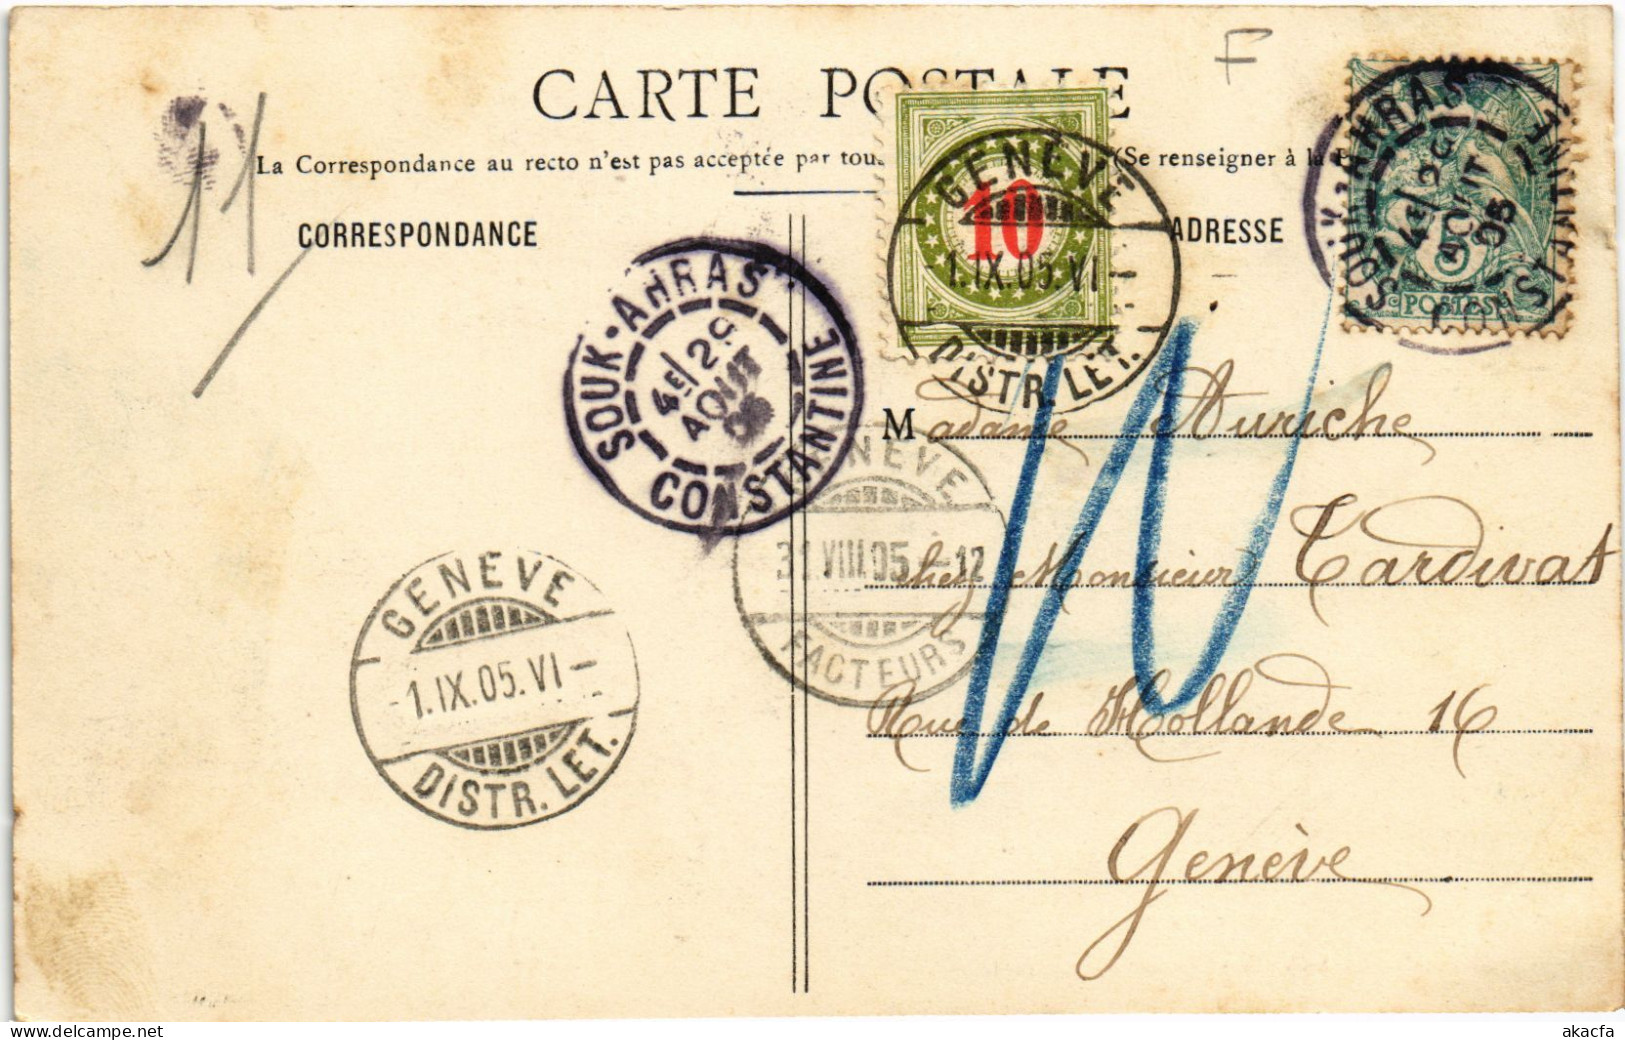 F
CARTE POSTALE
La Correspondance au recto n'est pas acceptée par tous (Se renseigner à la
11
CORRESPONDANCE
ADRESSE
10
GENÈVE
1.IX.05.VI
DISTR. LET.
SOUK-AHRAS
4E/29
AOUT
05
CONSTANTINE
5c POSTES
SOUK-AHRAS
4E/29
AOUT
05
CONSTANTINE
10
Madame Auriche
GENÈVE
31.VIII.05.-12
FACTEURS
chez Monsieur Tardivat
GENÈVE
-1.IX.05.VI-
DISTR. LET.
Rue de Hollande 16
Genève
akacfa
www.delcampe.net